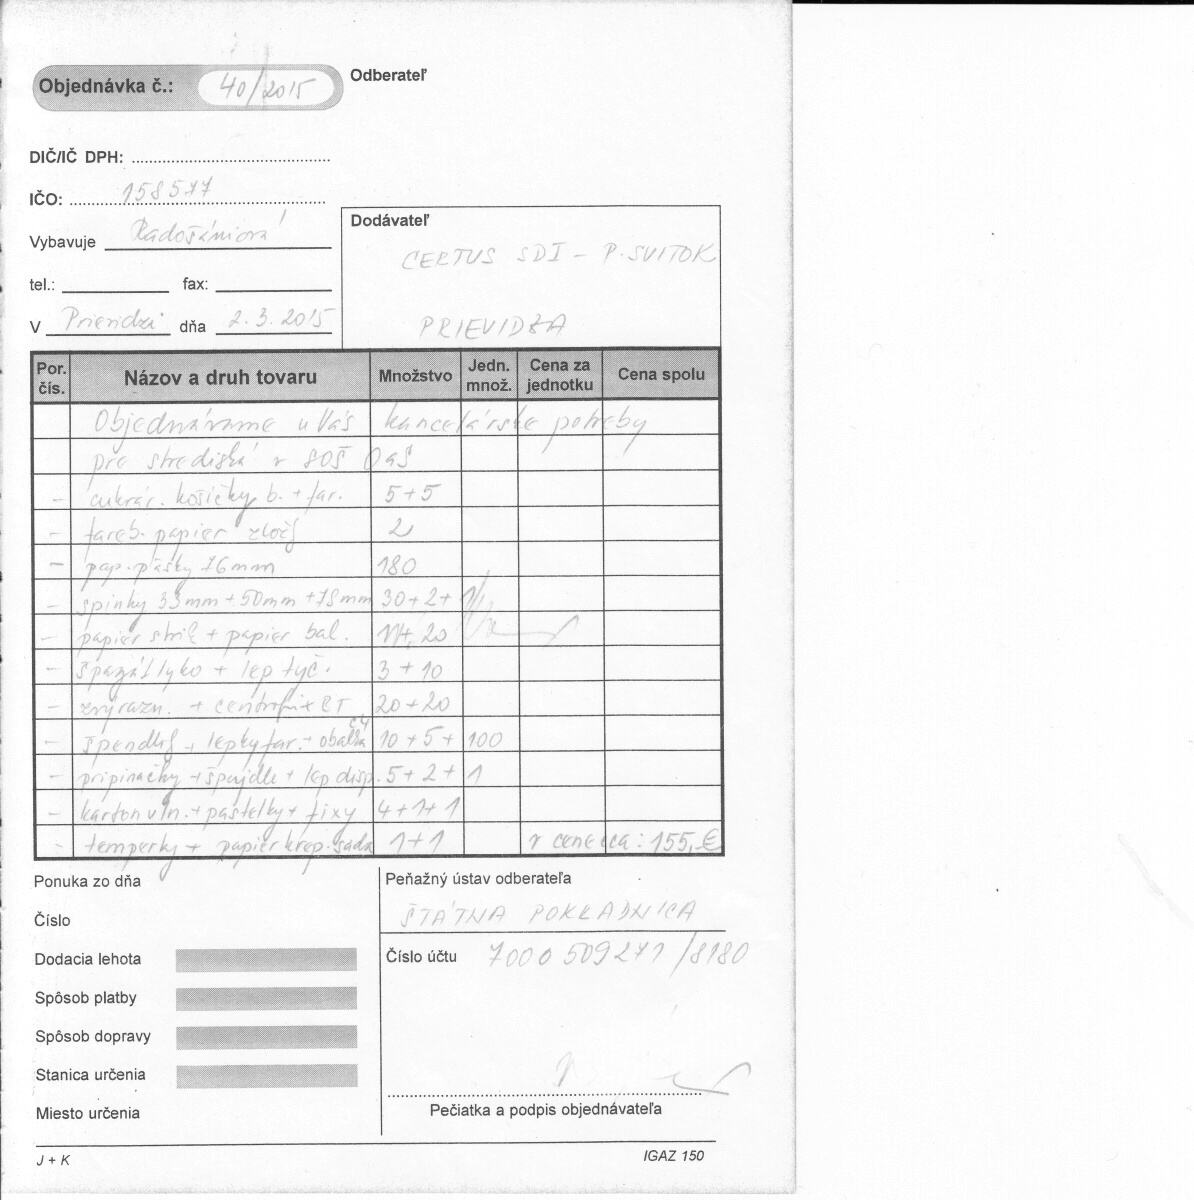 Objednávka č.: 40/2015
Odberateľ
DIČ/IČ DPH:
IČO: 158577
Vybavuje
Dodávateľ
CERTUS SDI - P. SVITOK
tel.: fax:
V Prievidzi dňa 2.3.2015
PRIEVIDZA
Por. čís. Názov a druh tovaru Množstvo Jedn. množ. Cena za jednotku Cena spolu
Objednávame u Vás kancelárske potreby
pre strediská v SOŠ OaS
- cukrár. košíčky b. + far. 5+5
- fareb. papier zlož 2
- pap. pásky 76mm 180
- spinky 33mm + 50mm + 78mm 30+2+1
- papier strik + papier bal. 20
- lyko + lep tyč. 3+10
- zvýrazn. + centrofix ET 20+20
- špendlíj + lepky far. + obálka C4 10+5+100
- pripináčky + špajdle + lep disp. 5+2+1
- karton vln. + pastelky + fixy 4+1+1
- temperky + papier krep. sada 1+1 v cene cca: 155,-€
Ponuka zo dňa
Peňažný ústav odberateľa
Číslo
ŠTÁTNA POKLADNICA
Dodacia lehota
Číslo účtu 7000509271/8180
Spôsob platby
Spôsob dopravy
Stanica určenia
Miesto určenia
Pečiatka a podpis objednávateľa
J + K
IGAZ 150